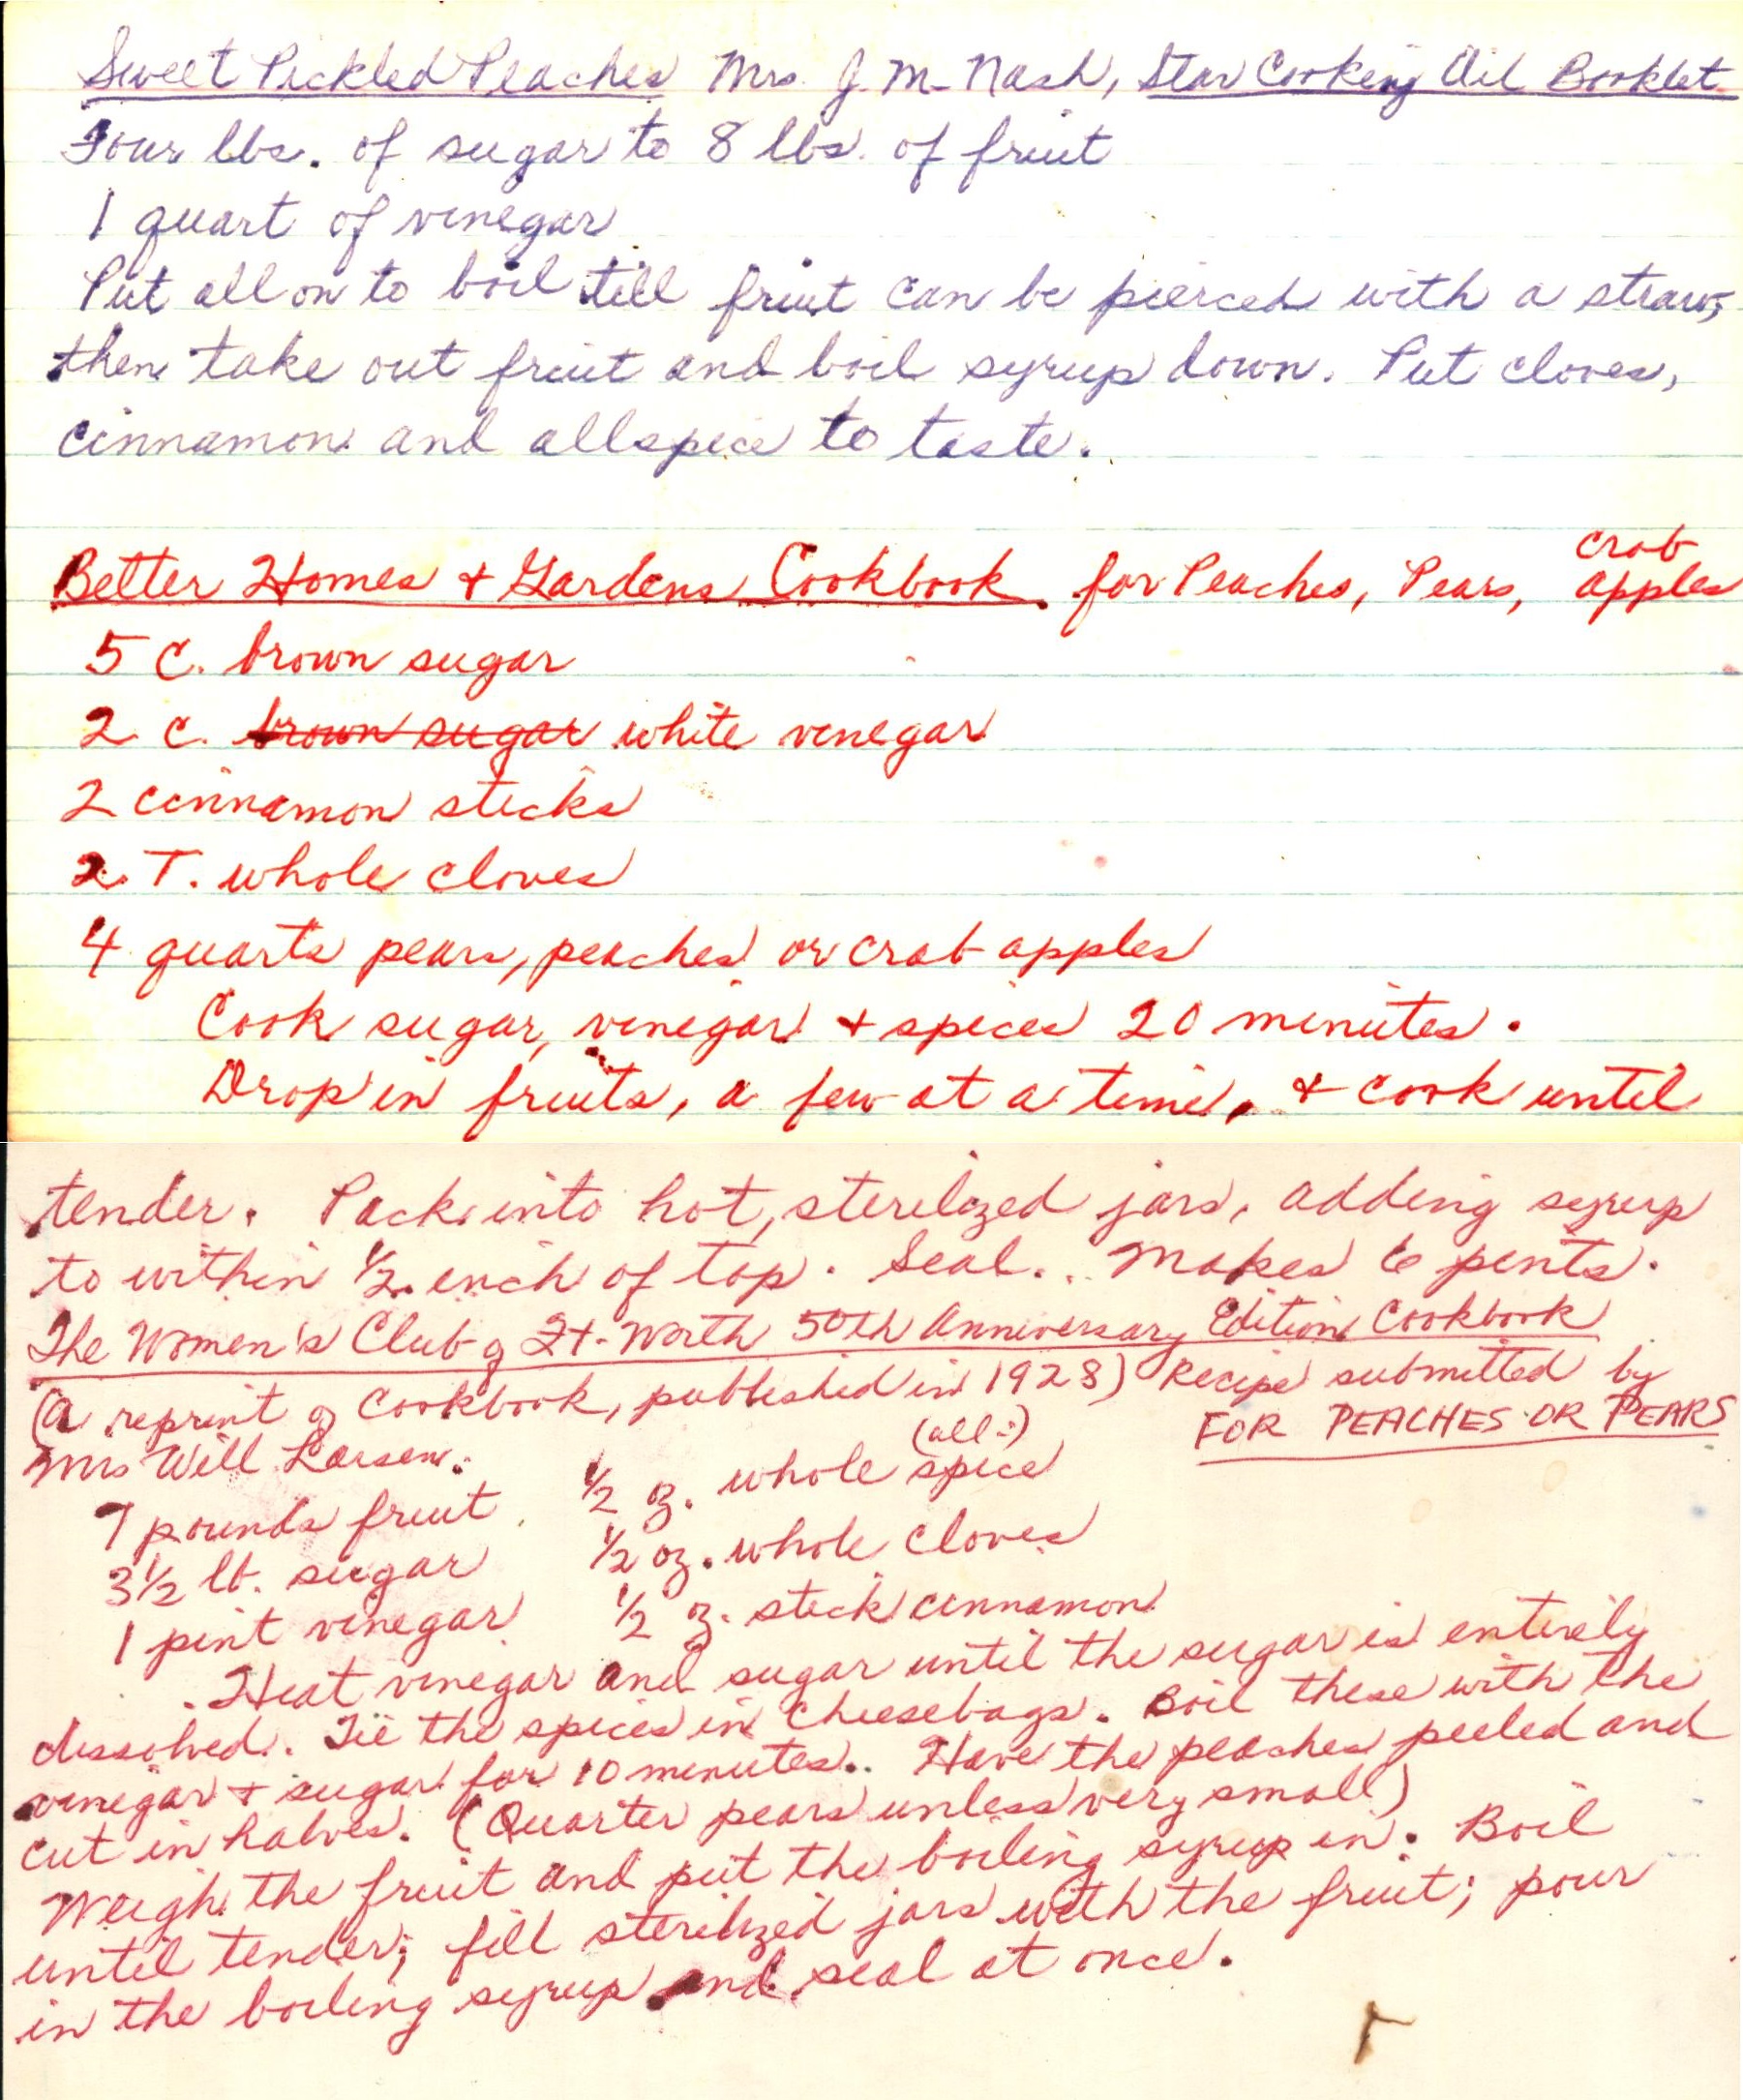 Sweet Pickled Peaches Mrs. J. M. Nash, Star Cooking Oil Booklet
Four lbs. of sugar to 8 lbs. of fruit
1 quart of vinegar
Put all on to boil till fruit can be pierced with a straw,
then take out fruit and boil syrup down. Put cloves,
cinnamon and allspice to taste.
Better Homes + Gardens Cookbook. for Peaches, Pears, crab apples
5 C. brown sugar
2 C. brown sugar white vinegar
2 cinnamon sticks
2 T. whole cloves
4 quarts pears, peaches or crab apples
Cook sugar, vinegar + spices 20 minutes.
Drop in fruits, a few at a time, + cook until
tender. Pack into hot, sterilized jars, adding syrup
to within 1/2 inch of top. Seal. Makes 6 pints.
The Women's Club of Ft. Worth 50th Anniversary Edition Cookbook
(A reprint of Cookbook, published in 1928) Recipe submitted by
Mrs Will Larsen. FOR PEACHES OR PEARS
7 pounds fruit 1/2 oz. whole (all-) spice
3 1/2 lb. sugar 1/2 oz. whole cloves
1 pint vinegar 1/2 oz. stick cinnamon
Heat vinegar and sugar until the sugar is entirely
dissolved. Tie the spices in cheesebags. Boil these with the
vinegar + sugar for 10 minutes. Have the peaches peeled and
cut in halves. (Quarter pears unless very small)
Weigh the fruit and put the boiling syrup in. Boil
until tender; fill sterilized jars with the fruit; pour
in the boiling syrup and seal at once.